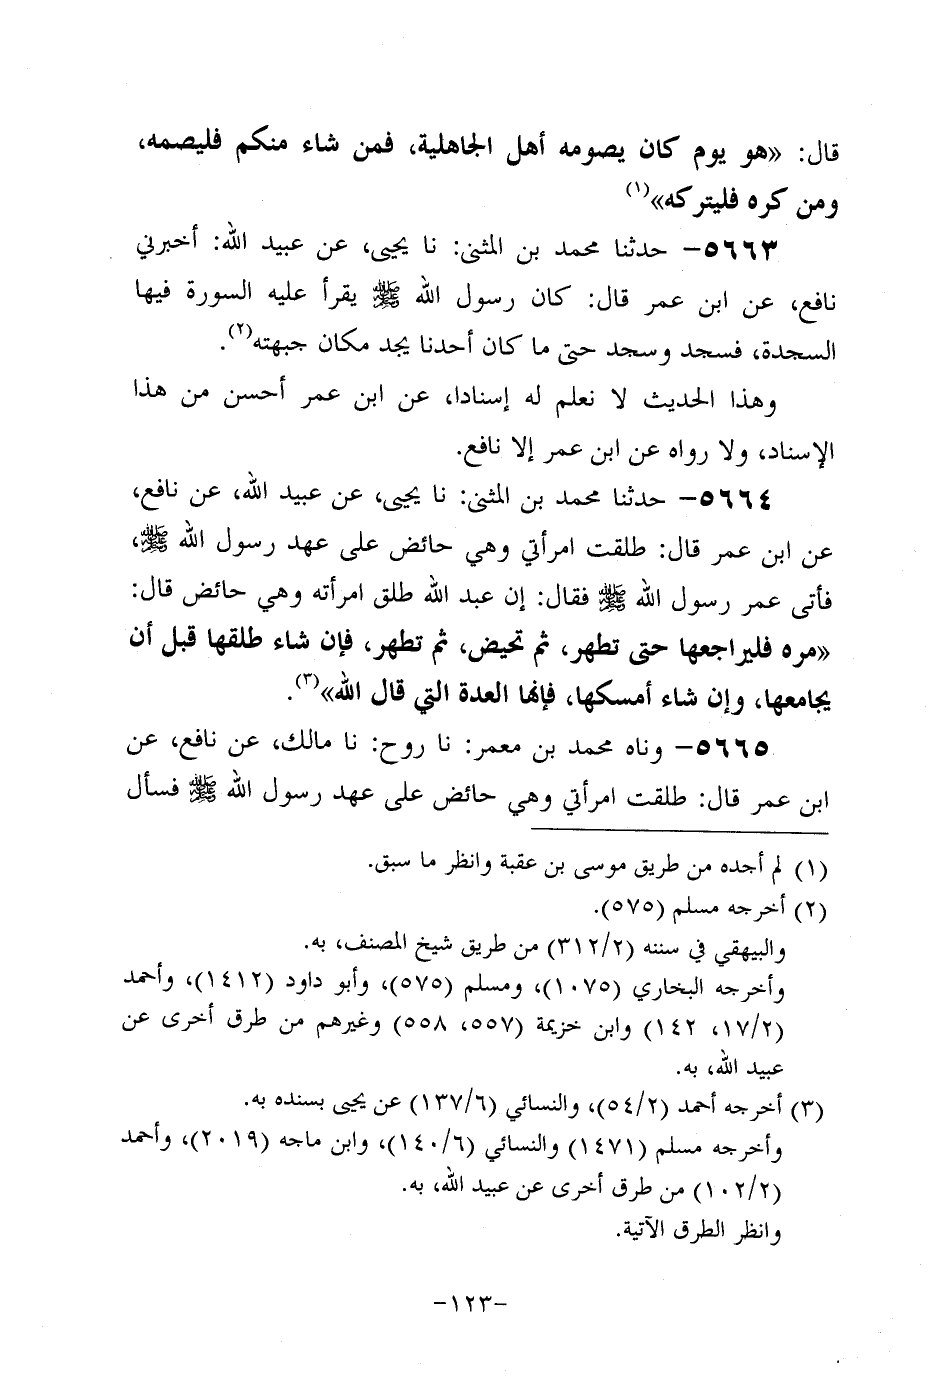 قال: «هو يوم كان يصومه أهل الجاهلية، فمن شاء منكم فليصمه،
ومن كره فليتركه»(١)
٥٦٦٣- حدثنا محمد بن المثنى: نا يحيى، عن عبيد الله: أخبرني
نافع، عن ابن عمر قال: كان رسول الله ﷺ يقرأ عليه السورة فيها
السجدة، فسجد وسجد حتى ما كان أحدنا يجد مكان جبهته(٢).
وهذا الحديث لا نعلم له إسنادا، عن ابن عمر أحسن من هذا
الإسناد، ولا رواه عن ابن عمر إلا نافع.
٥٦٦٤- حدثنا محمد بن المثنى: نا يحيى، عن عبيد الله، عن نافع،
عن ابن عمر قال: طلقت امرأتي وهي حائض على عهد رسول الله ﷺ،
فأتى عمر رسول الله ﷺ فقال: إن عبد الله طلق امرأته وهي حائض قال:
«مره فليراجعها حتى تطهر، ثم تحيض، ثم تطهر، فإن شاء طلقها قبل أن
يجامعها، وإن شاء أمسكها، فإنها العدة التي قال الله»(٣).
٥٦٦٥- وناه محمد بن معمر: نا روح: نا مالك، عن نافع، عن
ابن عمر قال: طلقت امرأتي وهي حائض على عهد رسول الله ﷺ فسأل
(١) لم أجده من طريق موسى بن عقبة وانظر ما سبق.
(٢) أخرجه مسلم (٥٧٥).
والبيهقي في سننه (٣١٢/٢) من طريق شيخ المصنف، به.
وأخرجه البخاري (١٠٧٥)، ومسلم (٥٧٥)، وأبو داود (١٤١٢)، وأحمد
(١٧/٢، ١٤٢) وابن خزيمة (٥٥٧، ٥٥٨) وغيرهم من طرق أخرى عن
عبيد الله، به.
(٣) أخرجه أحمد (٥٤/٢)، والنسائي (١٣٧/٦) عن يحيى بسنده به.
وأخرجه مسلم (١٤٧١) والنسائي (١٤٠/٦)، وابن ماجه (٢٠١٩)، وأحمد
(١٠٢/٢) من طرق أخرى عن عبيد الله، به.
وانظر الطرق الآتية.
-١٢٣-